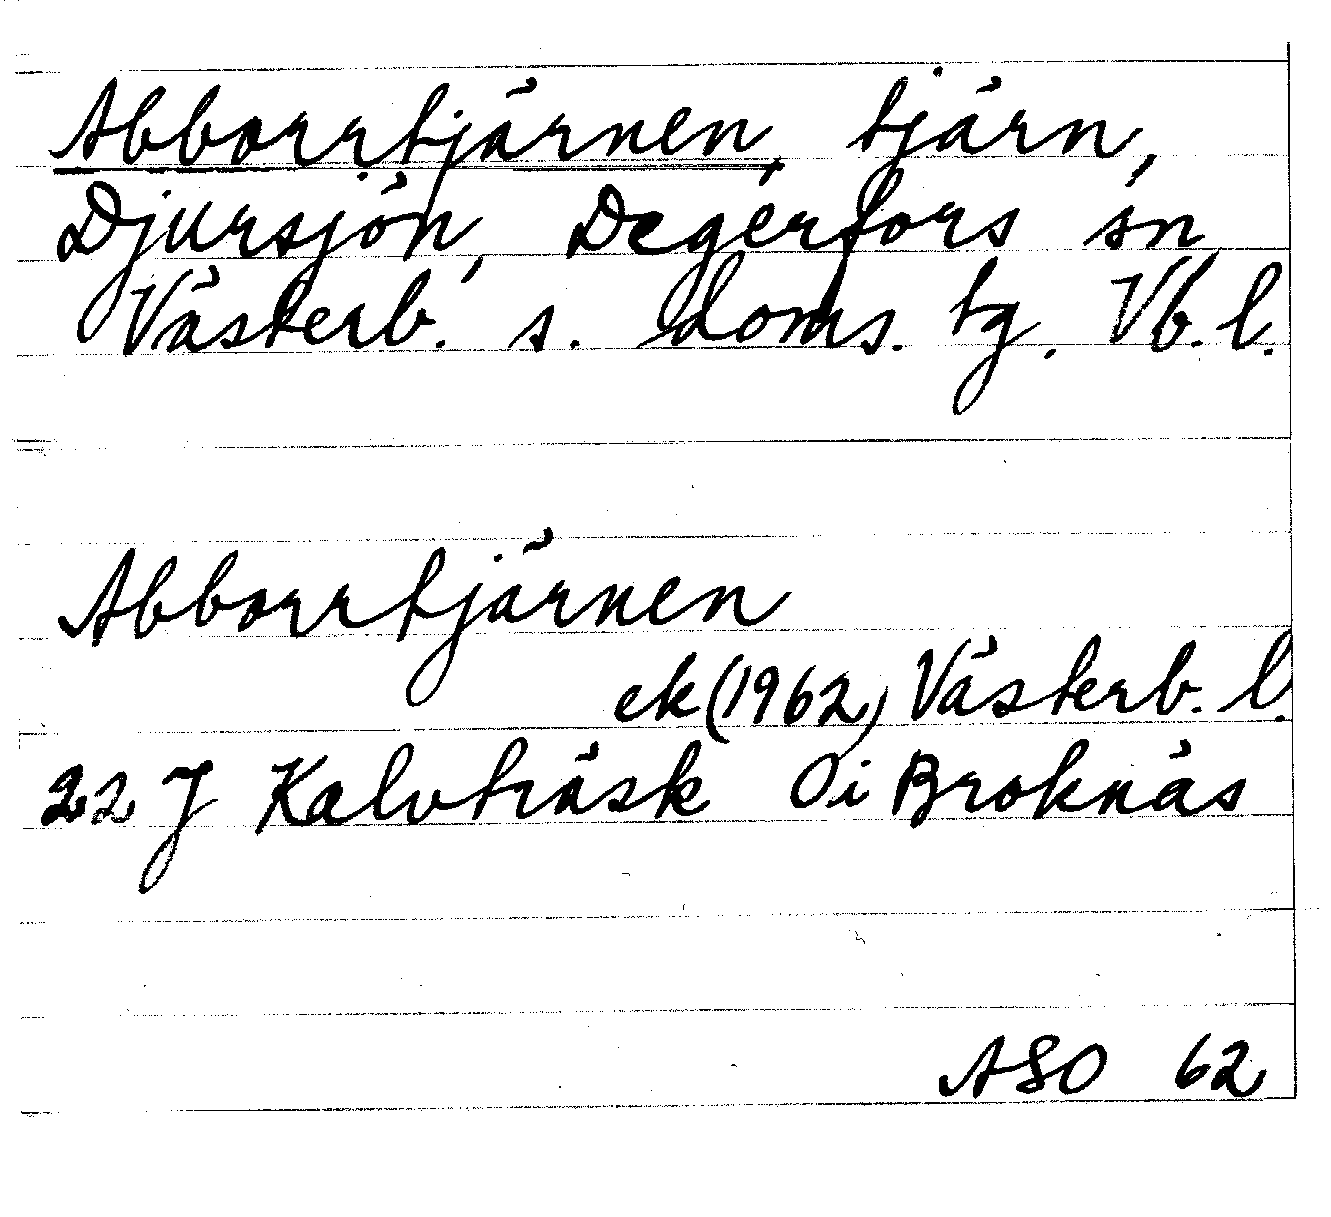 Abborrtjärnen, tjärn,
Djursjön, Degerfors sn
Västerb. s. doms. tg. Vb. l.
Abborrtjärnen
ek (1962) Västerb. l.
22 J Kalvträsk Oi Broknäs
ASO 62